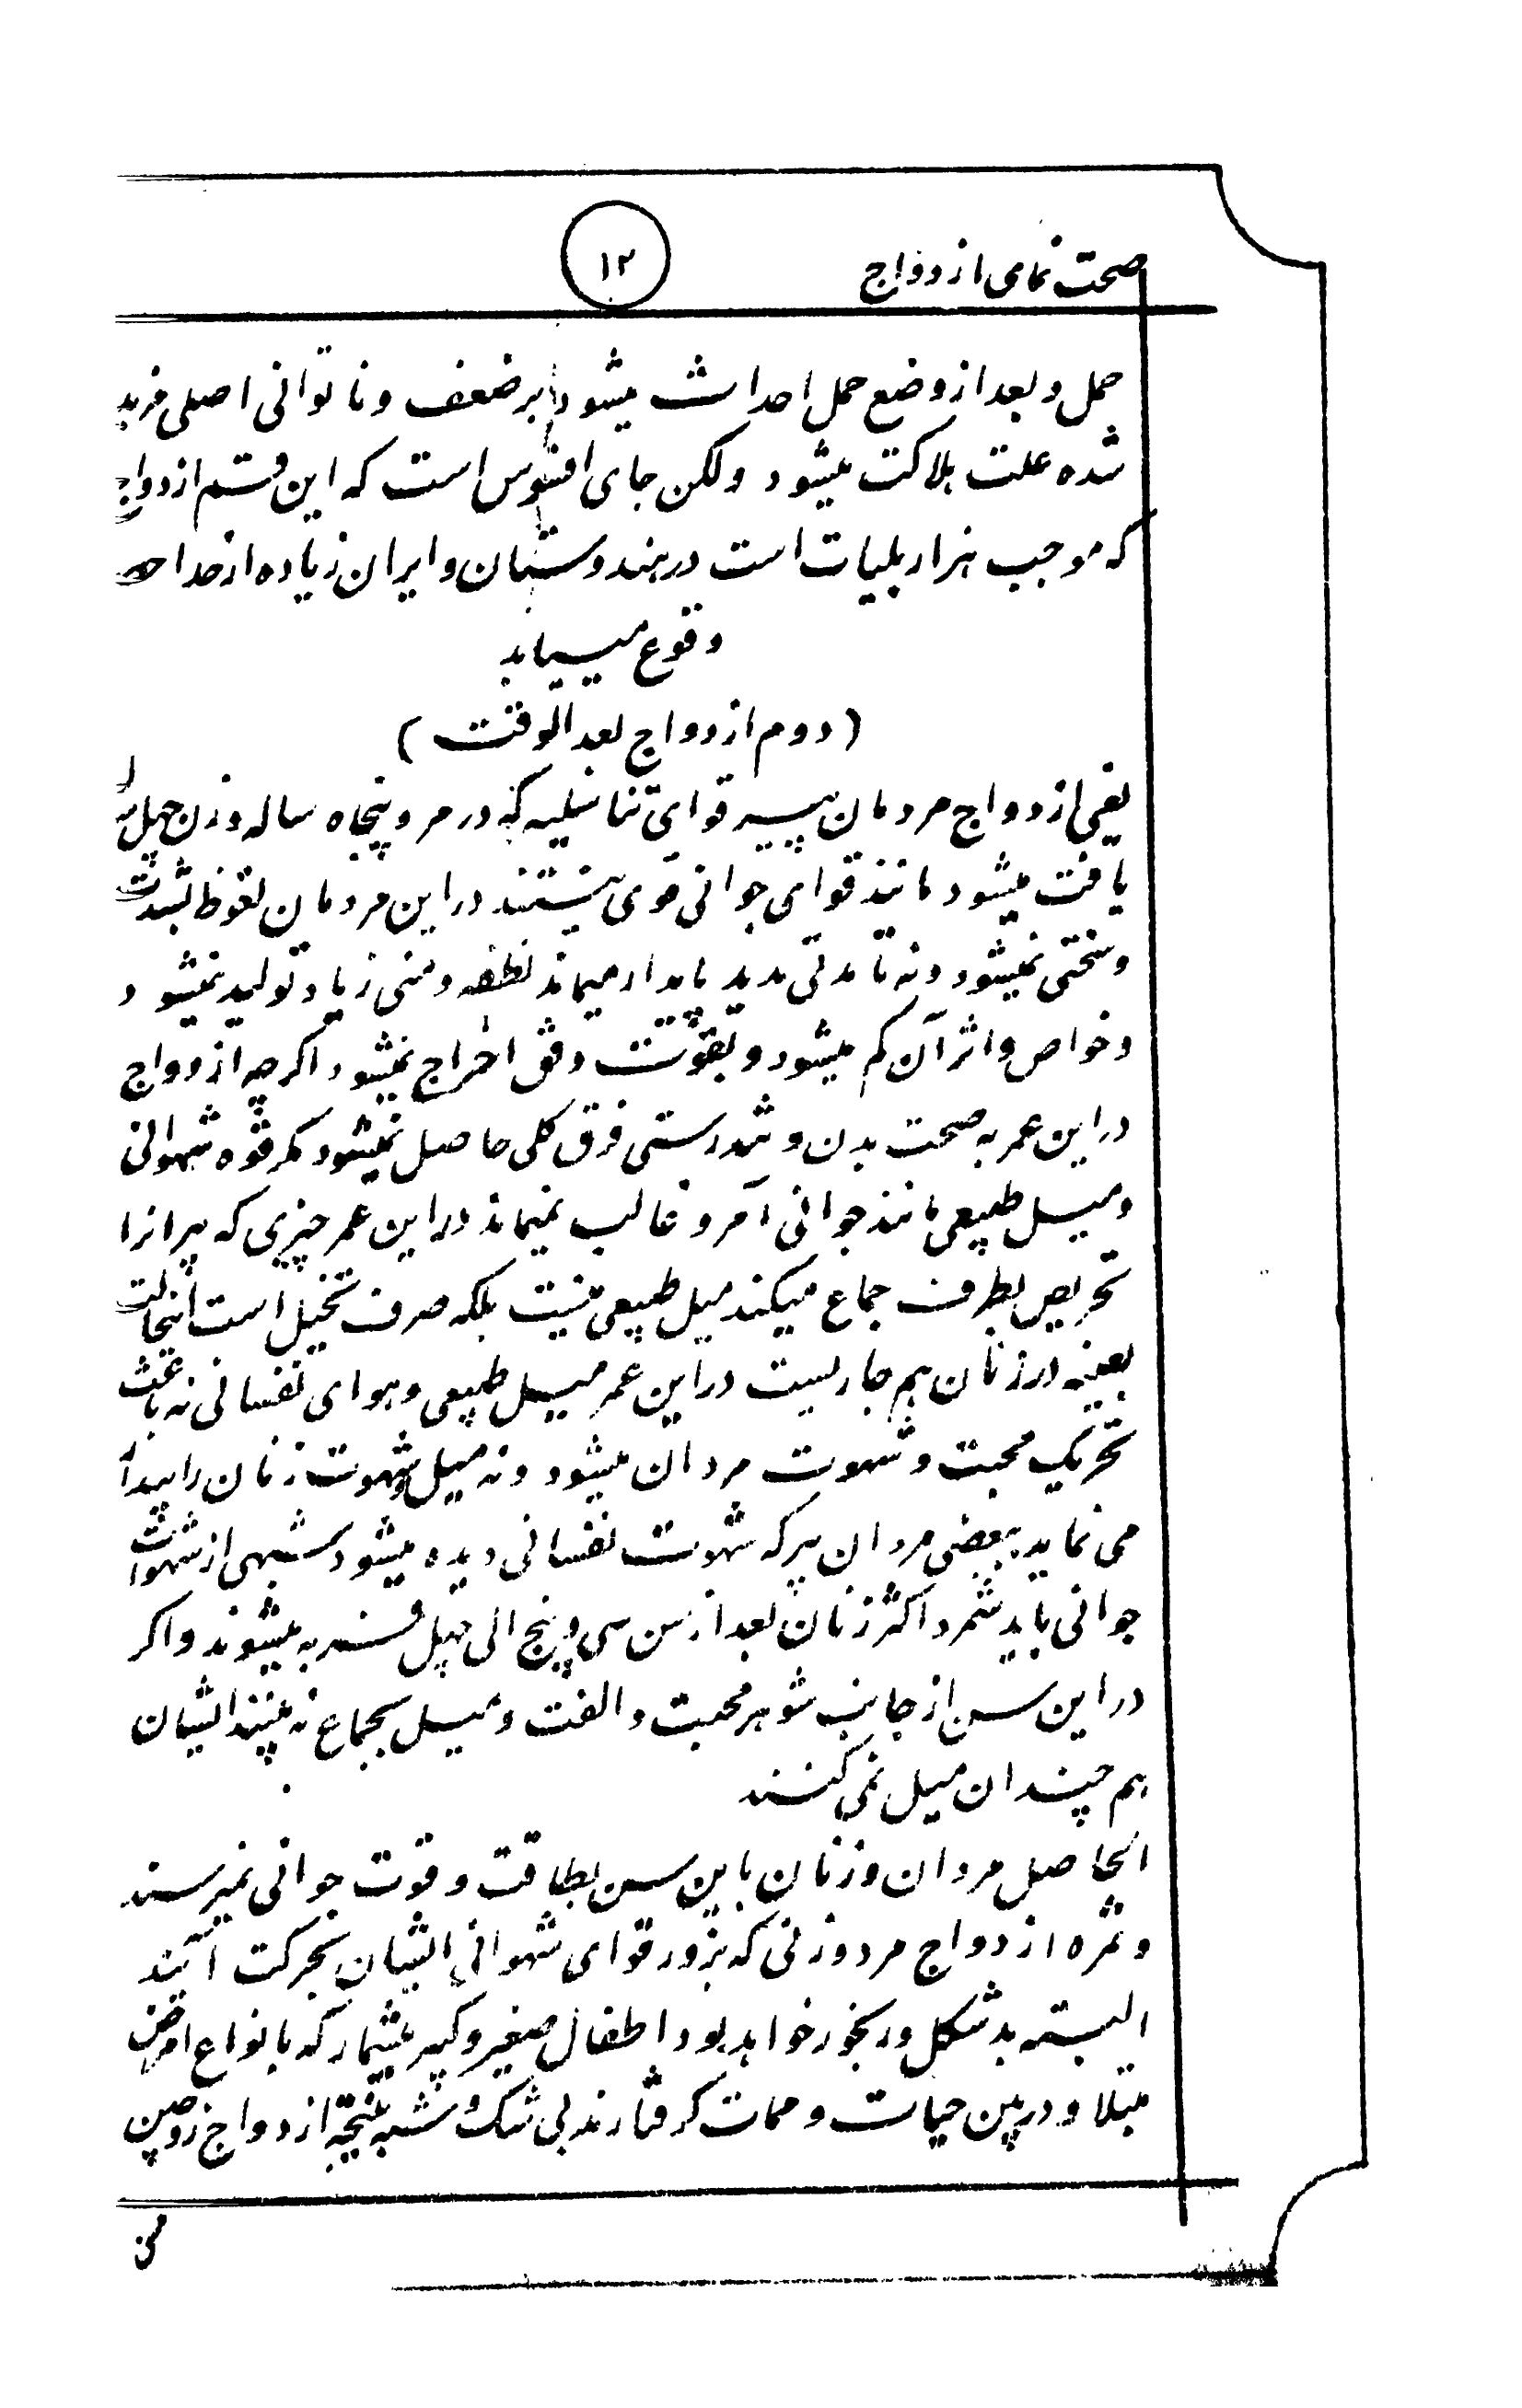 صحت نمای ازدواج
۱۲
حمل و بعد از وضع حمل احداث میشود بر ضعف و ناتوانی اصلی مزید
شده علت هلاکت میشود ولکن جای افسوس است که این قسم ازدواج
که موجب هزار بلیات است در هندوستان و ایران زیاده از حد احصا
وقوع مییابد
(دوم ازدواج بعد الوقت)
یعنی ازدواج مردمان پیر قوای تناسلیه که در مرد پنجاه ساله و زن چهل
یافت میشود مانند قوای جوانی قوی نیستند در این مردمان نعوظ بشدت
و سختی نمیشود و نه تا مدتی مدید پایدار میماند نطفه و منی زیاد تولید نمیشود
و خواص و اثر آن کم میشود و بقوت دفق اخراج نمیشود اکرچه ازدواج
در این عمر به صحت بدن و تندرستی فرق کلی حاصل نمیشود مکر قوه شهوانی
و میل طبیعی مانند جوانی آمر و غالب نمیماند در این عمر چیزی که پیرانرا
تحریص بطرف جماع میکند میل طبیعی نیست بلکه صرف تخیل است اینحالت
بعینه در زنان هم جاریست در این عمر میل طبیعی و هوای نفسانی نه باعث
تحریک محبت و شهوت مردان میشود و نه میل و شهوت زنان را پیدا
می نماید ببعضی مردان پیر که شهوت نفسانی دیده میشود شبهی از شهوات
جوانی باید شمرد اکثر زنان بعد از سن سی و پنج الی چهل فربه میشوند و اکر
در این سن از جانب شوهر محبت و الفت و میل بجماع نه بینند ایشان
هم چندان میل نمی کنند
الحاصل مردان و زنان باین سن بطاقت و قوت جوانی نمیرسند
و ثمره ازدواج مرد و زنی که بزور قوای شهوانی ایشان بحرکت آیند
البته بد شکل و رنجور خواهد بود اطفال صغیر و کبیر بیشمار که بانواع امراض
مبتلا و در بین حیات و ممات کرفتارند بی شک و شبه نتیجه ازدواج زوجین